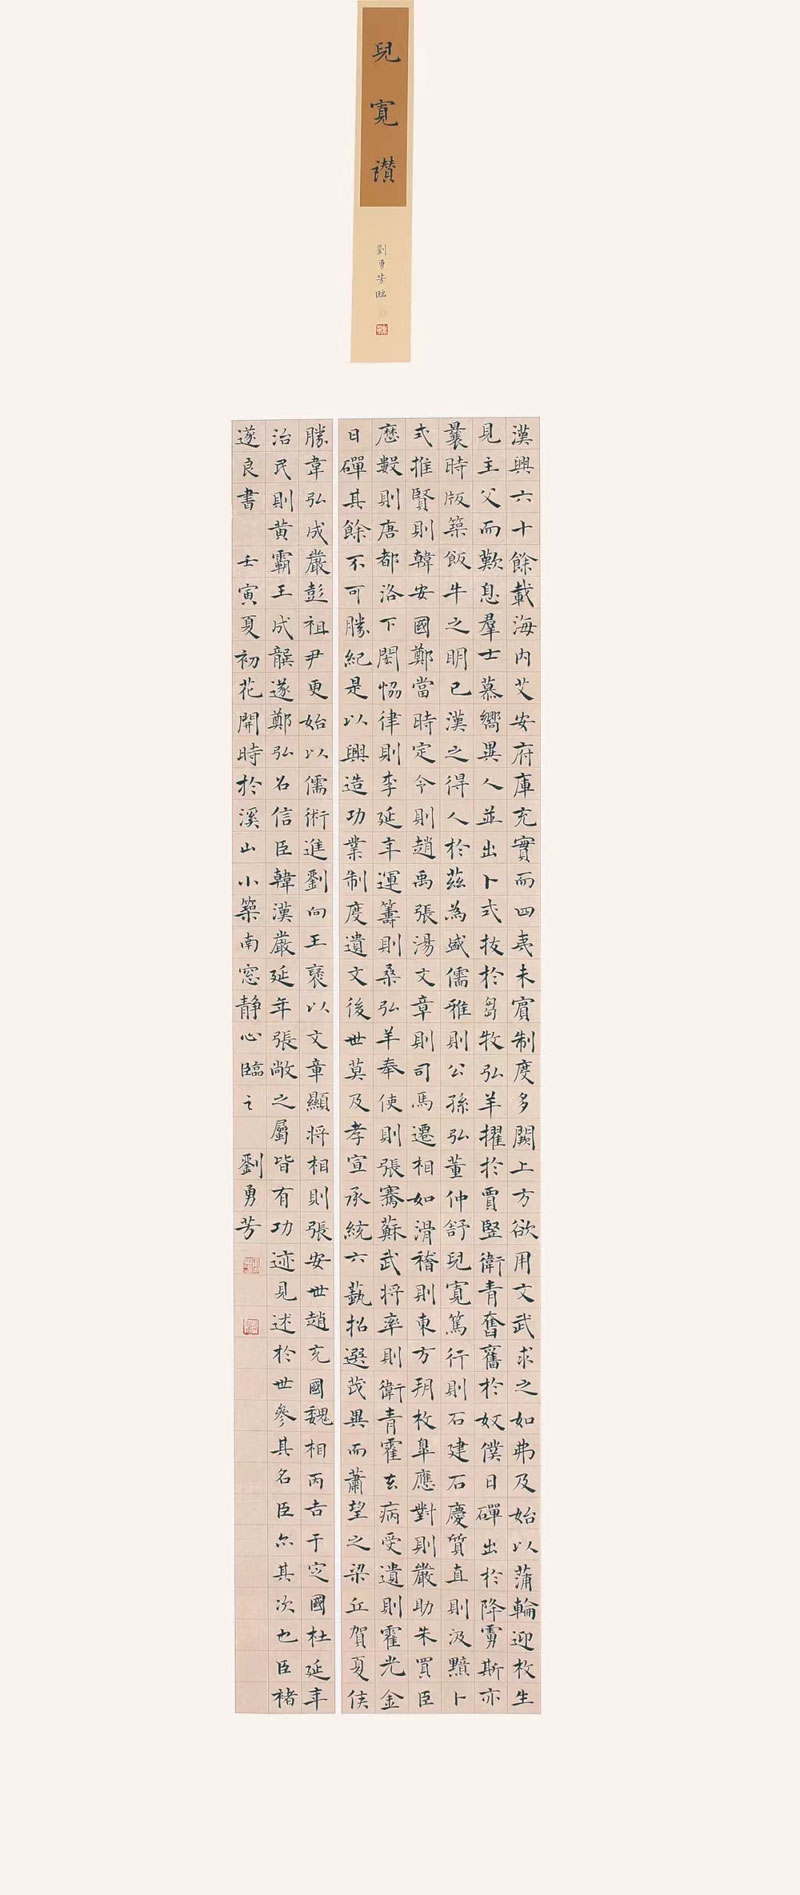 兒寬讚
劉勇芳臨
漢興六十餘載海內艾安府庫充實而四夷未賓制度多闕上方欲用文武求之如弗及始以蒲輪迎枚生
見主父而歎息羣士慕嚮異人並出卜式拔於芻牧弘羊擢於賈豎衛青奮舊於奴僕日磾出於降虜斯亦
曩時版築飯牛之明已漢之得人於茲為盛儒雅則公孫弘董仲舒兒寬篤行則石建石慶質直則汲黯卜
式推賢則韓安國鄭當時定令則趙禹張湯文章則司馬遷相如滑稽則東方朔枚皋應對則嚴助朱買臣
歷數則唐都洛下閎恊律則李延年運籌則桑弘羊奉使則張騫蘇武將率則衛青霍去病受遺則霍光金
日磾其餘不可勝紀是以興造功業制度遺文後世莫及孝宣承統六藝招選茂異而蕭望之梁丘賀夏侯
勝韋弘成嚴彭祖尹更始以儒術進劉向王襃以文章顯將相則張安世趙充國魏相丙吉于定國杜延年
治民則黃霸王成龔遂鄭弘召信臣韓漢嚴延年張敞之屬皆有功迹見述於世參其名臣亦其次也臣褚
遂良書 壬寅夏初花開時於溪山小築南窓静心臨之 劉勇芳